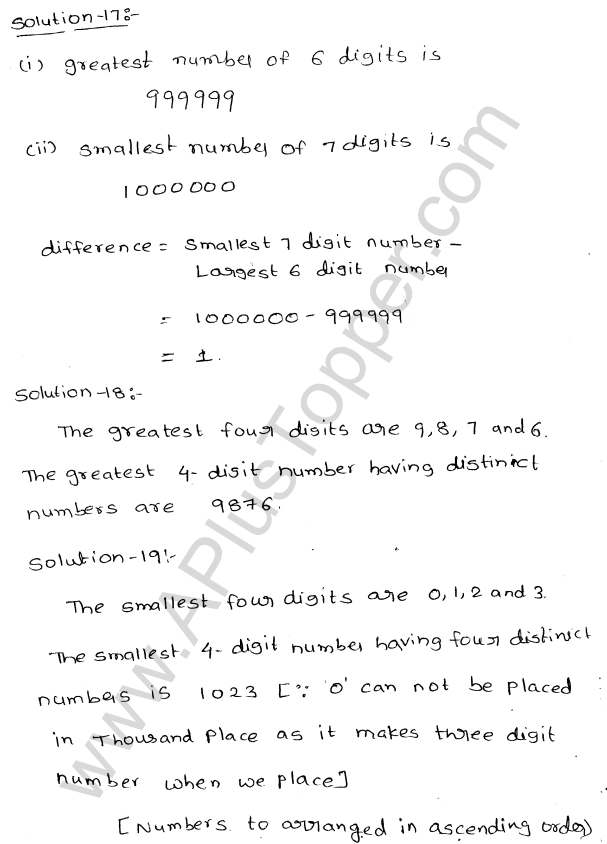 Solution-17:-
(i) greatest number of 6 digits is
999999
(ii) smallest number of 7 digits is
1000000
difference = smallest 7 digit number -
Largest 6 digit number
= 1000000 - 999999
= 1.
Solution-18:-
The greatest four digits are 9,8,7 and 6.
The greatest 4-digit number having distinict
numbers are 9876.
Solution-19:-
The smallest four digits are 0,1,2 and 3.
The smallest 4-digit number having four distinict
numbers is 1023 [∵ '0' can not be placed
in Thousand place as it makes three digit
number when we place]
[Numbers to arranged in ascending order)
www.APlusTopper.com